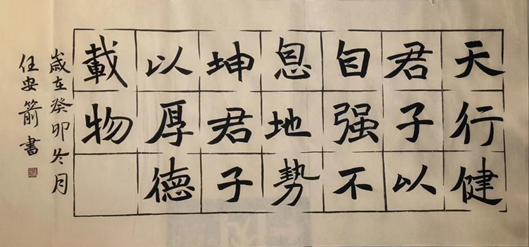 天行健
君子以
自强不
息地勢
坤君子
以厚德
載物
歲在癸卯冬月
任安箭書